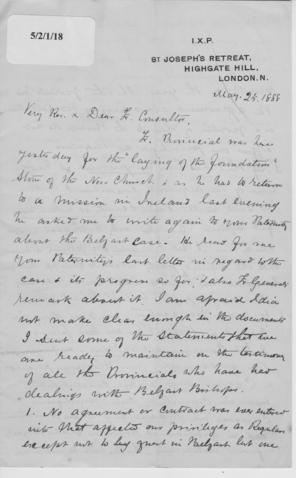 5/2/1/18
I.X.P.
ST JOSEPH'S RETREAT,
HIGHGATE HILL,
LONDON. N.
May. 24. 1888
Very Rev. & Dear Fr. Consultor,
Fr. Provincial was here
yesterday for the "laying of the foundation"
Stone of the New Church & as he had to return
to a mission in Ireland last evening
he asked me to write again to your Paternity
about the Belfast case. He read for me
your Paternity's last letter in regard to the
case & its progress so far, & also Fr General's
remark about it. I am afraid I did
not make clear enough in the documents
I sent some of the Statements that we
are ready to maintain on the testimony
of all the Provincials who have had
dealings with Belfast Bishops.
1. No agreement or contract was ever entered
into that affected our privileges as Regulars
except not to quest in Belfast but one